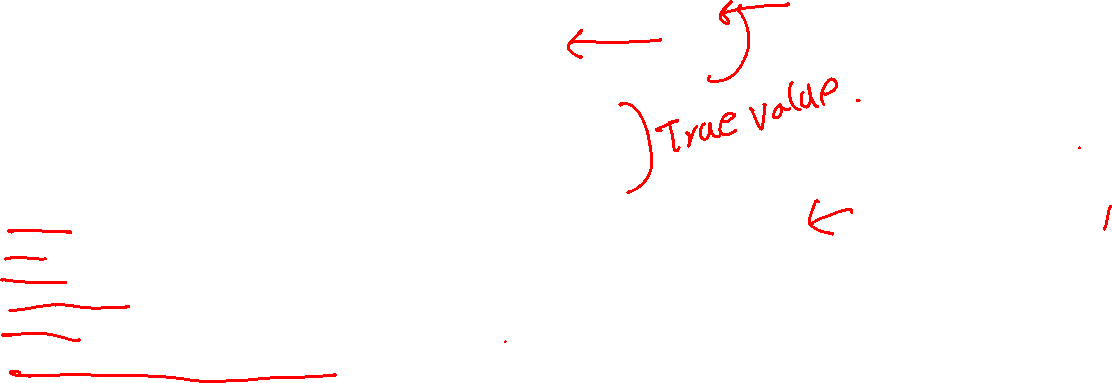 True value.